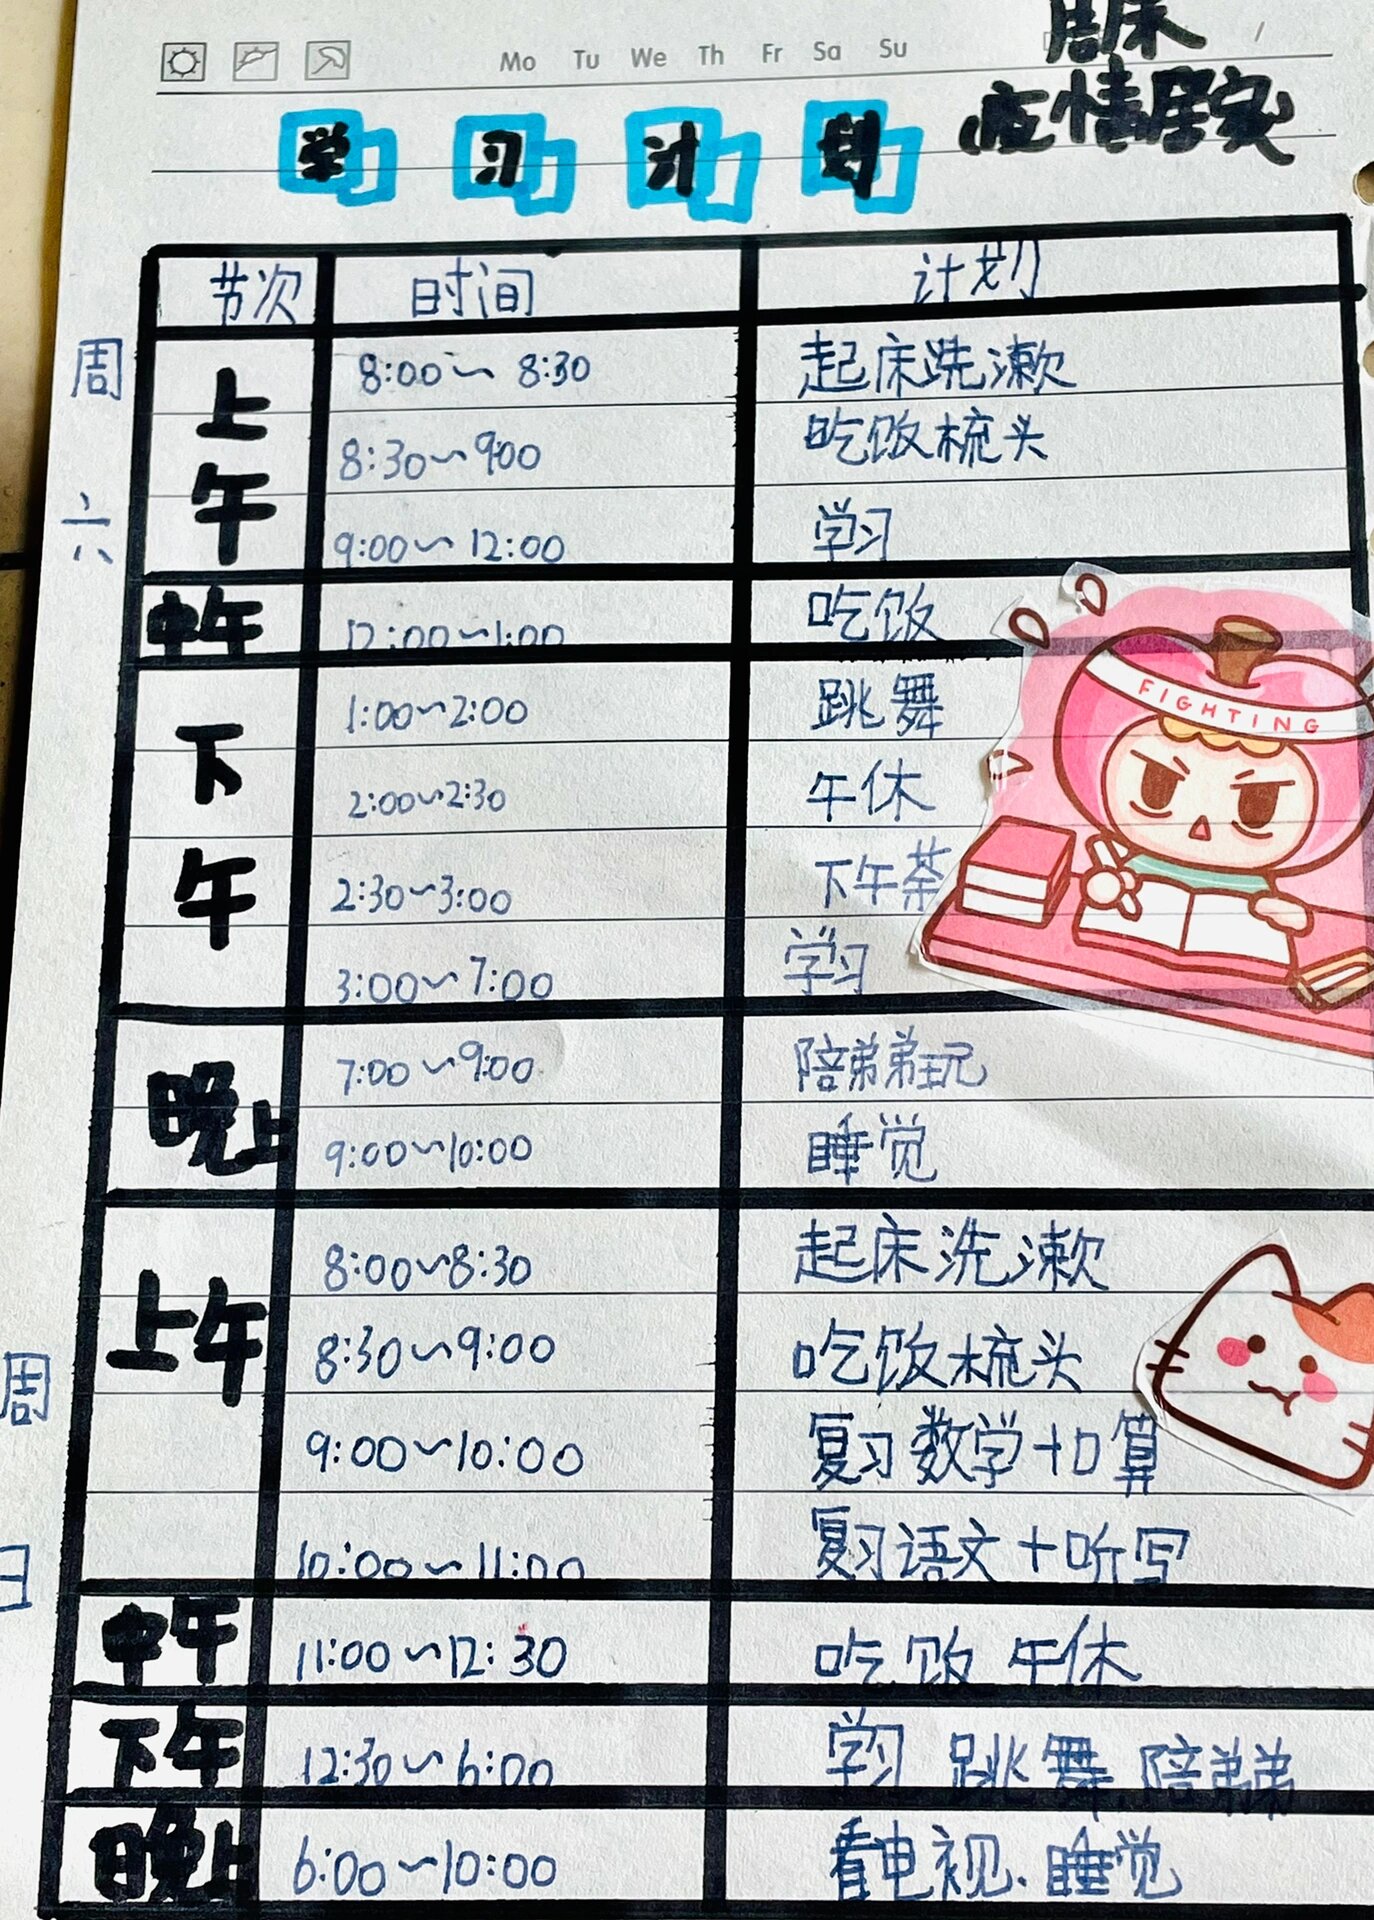 Mo Tu We Th Fr Sa Su
周末
疫情居家
学习计划
节次 时间 计划
周六
上午
8:00～8:30 起床洗漱
8:30～9:00 吃饭梳头
9:00～12:00 学习
中午 12:00～1:00 吃饭
下午
1:00～2:00 跳舞
2:00～2:30 午休
2:30～3:00 下午茶
3:00～7:00 学习
FIGHTING
晚上
7:00～9:00 陪弟弟玩
9:00～10:00 睡觉
周日
上午
8:00～8:30 起床洗漱
8:30～9:00 吃饭梳头
9:00～10:00 复习数学+口算
10:00～11:00 复习语文+听写
中午 11:00～12:30 吃饭 午休
下午 12:30～6:00 学习 跳舞、陪弟弟
晚上 6:00～10:00 看电视、睡觉